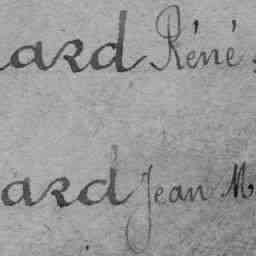 ard Réné
ard Jean M